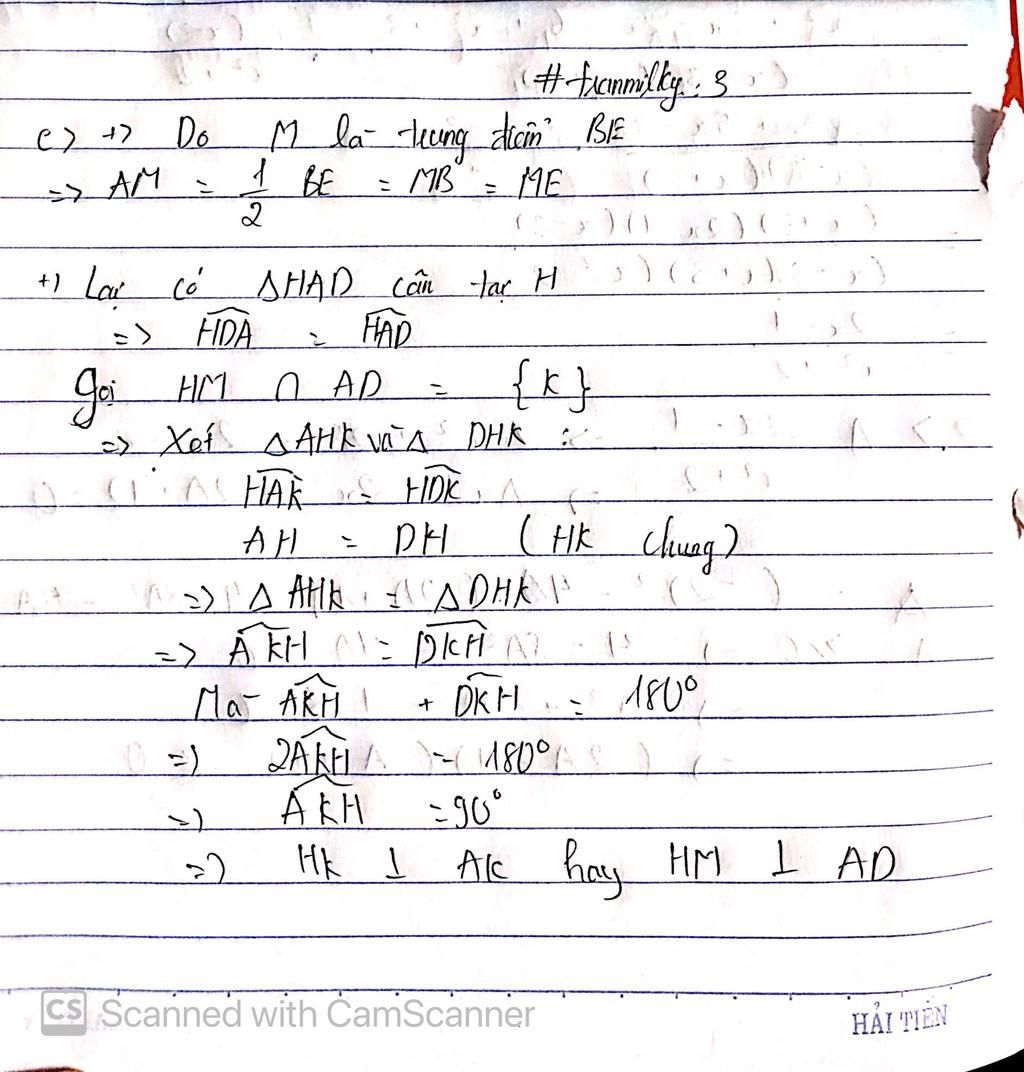 #fxanmilky:3
c> +> Do M là trung điểm BE
=> AM = 1/2 BE = MB = ME
+) Lại có ΔHAD cân tại H
=> HDA = HAD
gọi HM ∩ AD = {K}
=> Xét ΔAHK và Δ DHK :
HAK = HDK
AH = DH (HK chung)
=> Δ AHK = Δ DHK
=> AKH = DKH
Mà AKH + DKH = 180°
=) 2AKH = 180°
=) AKH = 90°
=) HK ⊥ AK hay HM ⊥ AD
CS Scanned with CamScanner
HẢI TIẾN